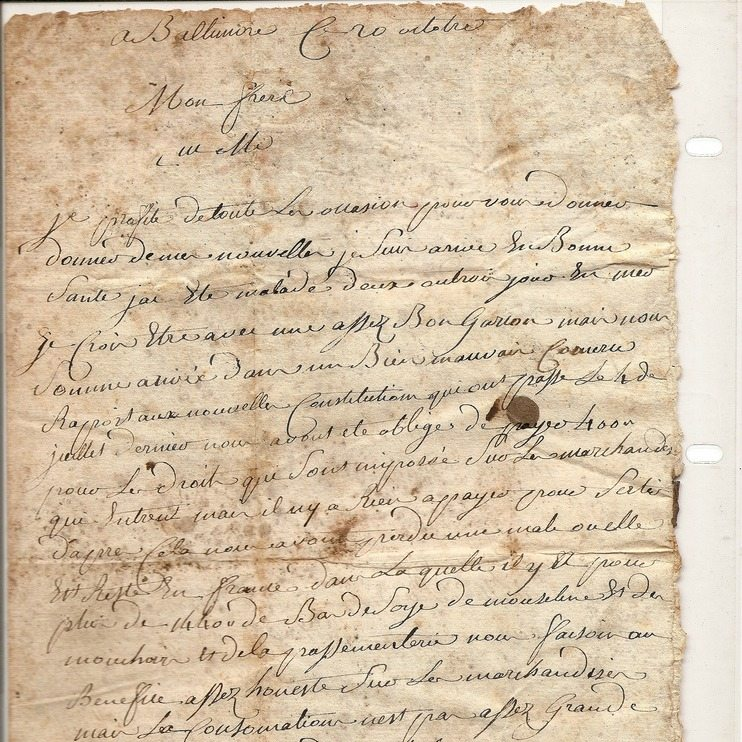 a Baltimore Ce 20 octobre
Mon frere
je profite de toute Les occasion pour vous donner
donner de mes nouvelles je suis arivé En Bonne
Santé jai Eté malade deux ou trois jour En mer
je Crois Etre avec une assez Bon Garson mais nous
Somme arivée dans un Bien mauvais Comerce
Raport aux nouvelles Constitution qui ont passé Le 4 de
juillet dernier nous avons eté obligés de payer 400#
pour Les droits qui sont imposse Sur Les marchandis
que Entrent mais il ny a Rien a payer pour Sortir
dapre Cela nous avons perdu une male ou elle
Est Resté En france dans La quelle il y Et pour
plus de de Bas de Soye de mouseline Et des
mouchoirs Et de la passementerie nous faison un
Benefice assez honeste Sur Les marchandises
mais La Consomation nest pas assez Grande